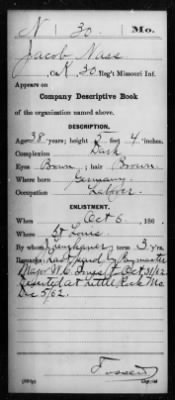 N 30 Mo.
Jacob Nass
, Co. K, 30 Reg't Missouri Inf.
Appears on
Company Descriptive Book
of the organization named above.
DESCRIPTION.
Age 38 years; height 5 feet 4 inches.
Complexion Dark
Eyes Brown; hair Brown
Where born Germany
Occupation Laborer
ENLISTMENT.
When Oct 6, 186
Where St Louis
By whom term 3 y'rs.
Remarks: Last paid by Paymaster
Major W.C. to Oct 31/62.
Deserted at Little Rock Mo
Dec 5/62.